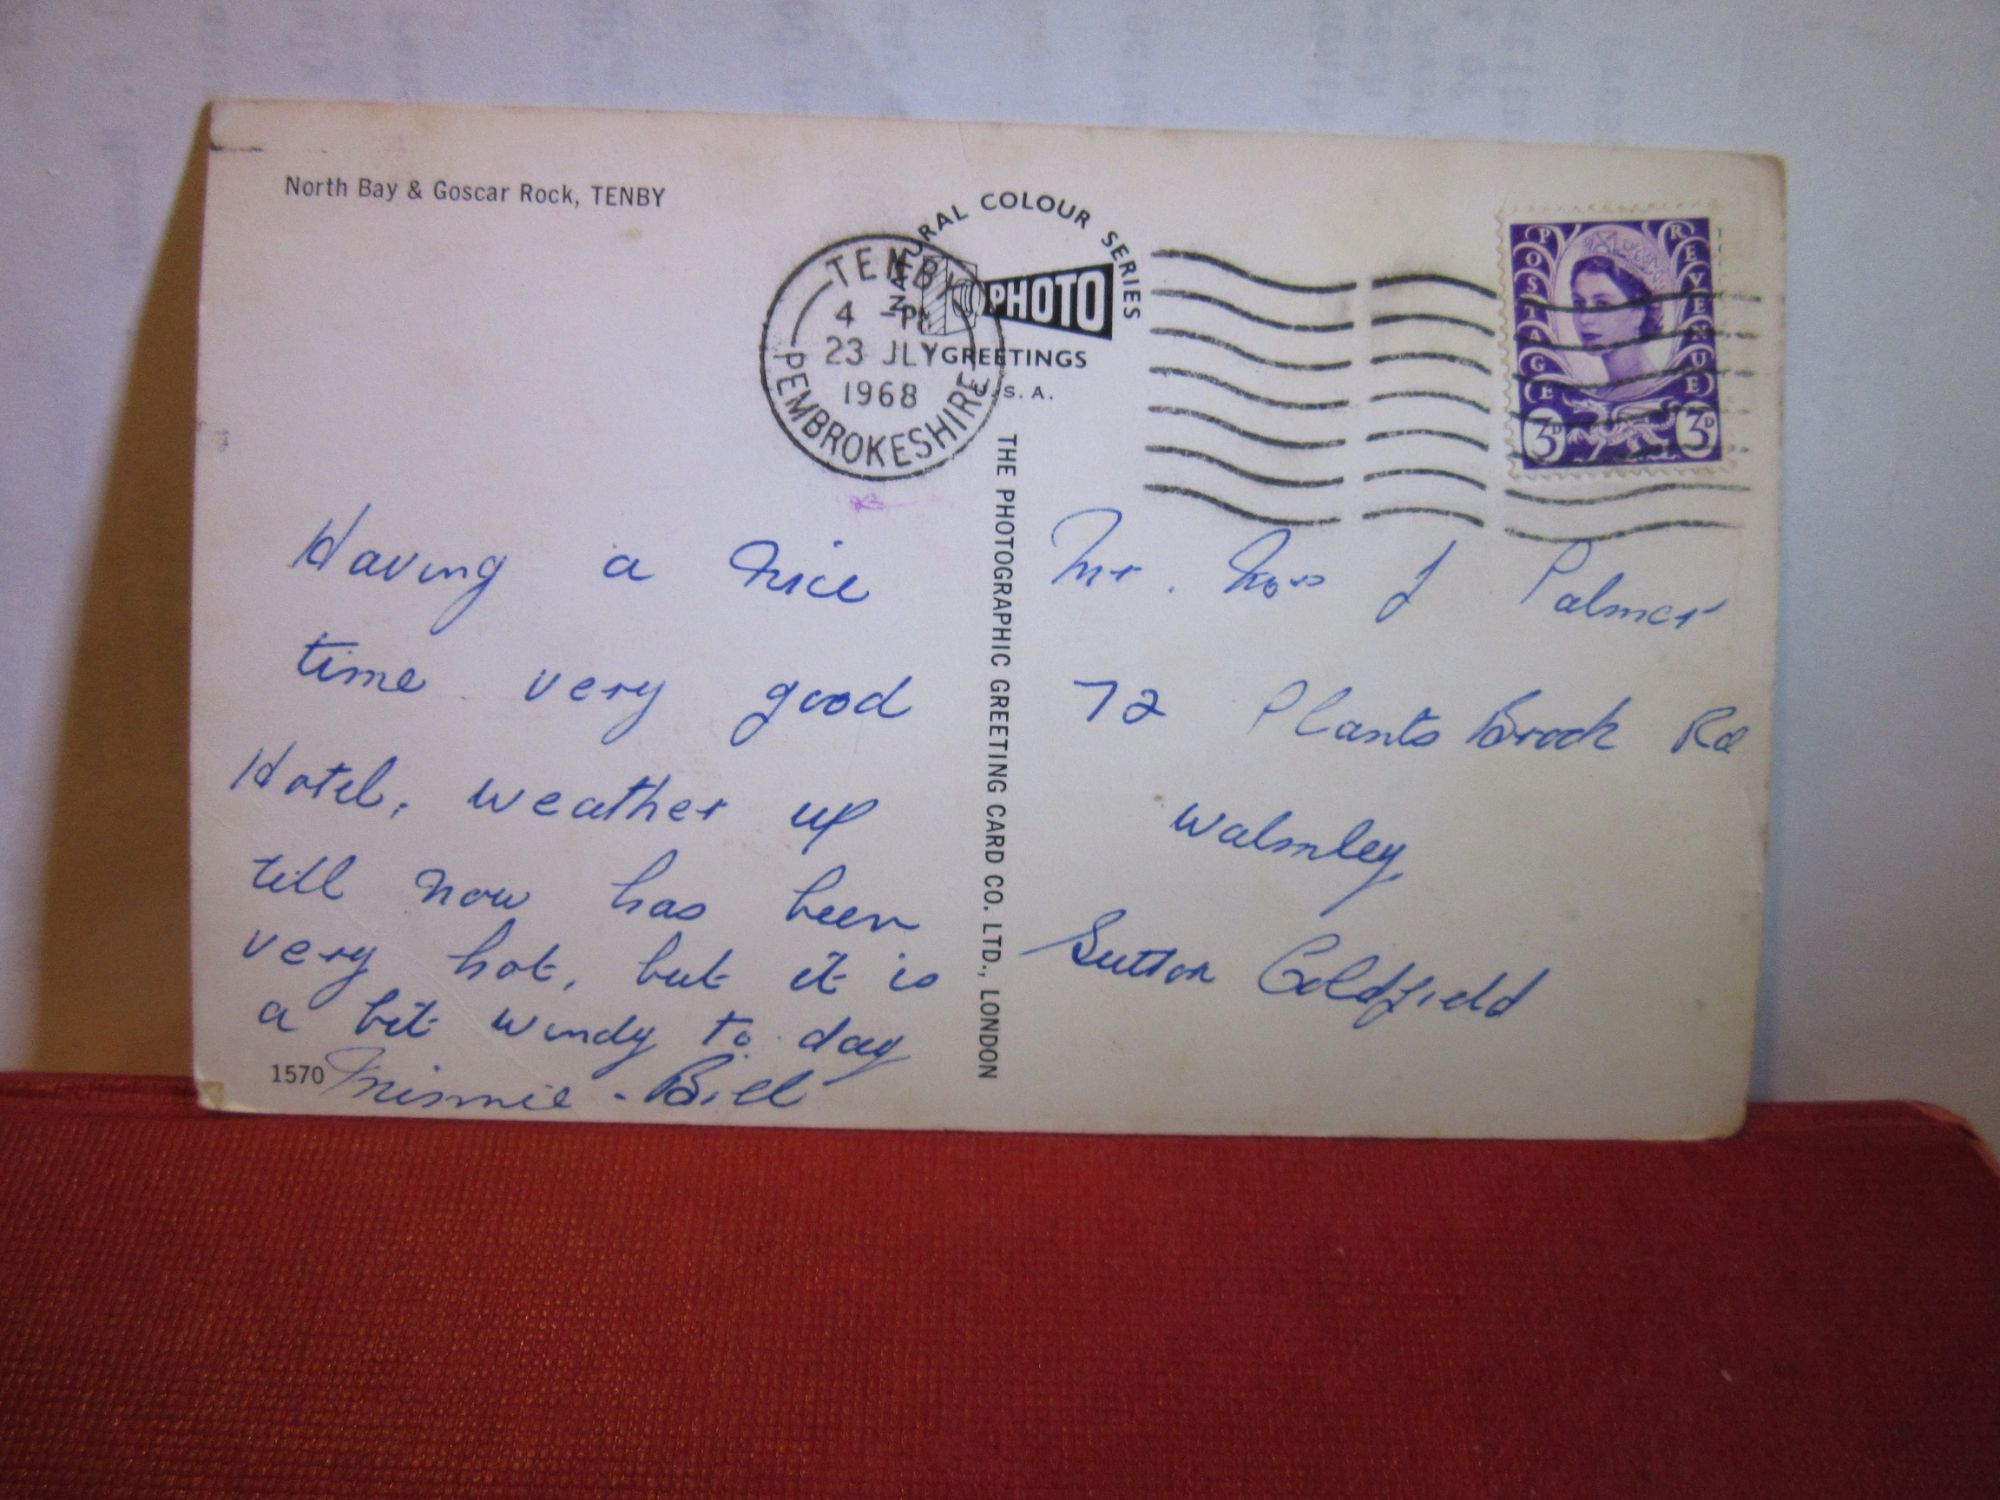 North Bay & Goscar Rock, TENBY
NATURAL COLOUR SERIES
PHOTO
GREETINGS
U.S.A.
TENBY
4 - PM
23 JLY
1968
PEMBROKESHIRE
POSTAGE REVENUE
3D 3D
Having a nice
time very good
Hotel, weather up
till now has been
very hot, but it is
a bit windy to day
Minnie - Bill
1570
THE PHOTOGRAPHIC GREETING CARD CO. LTD., LONDON
Mr. Mrs J Palmer
72 Plants Brook Rd
Walmley
Sutton Coldfield